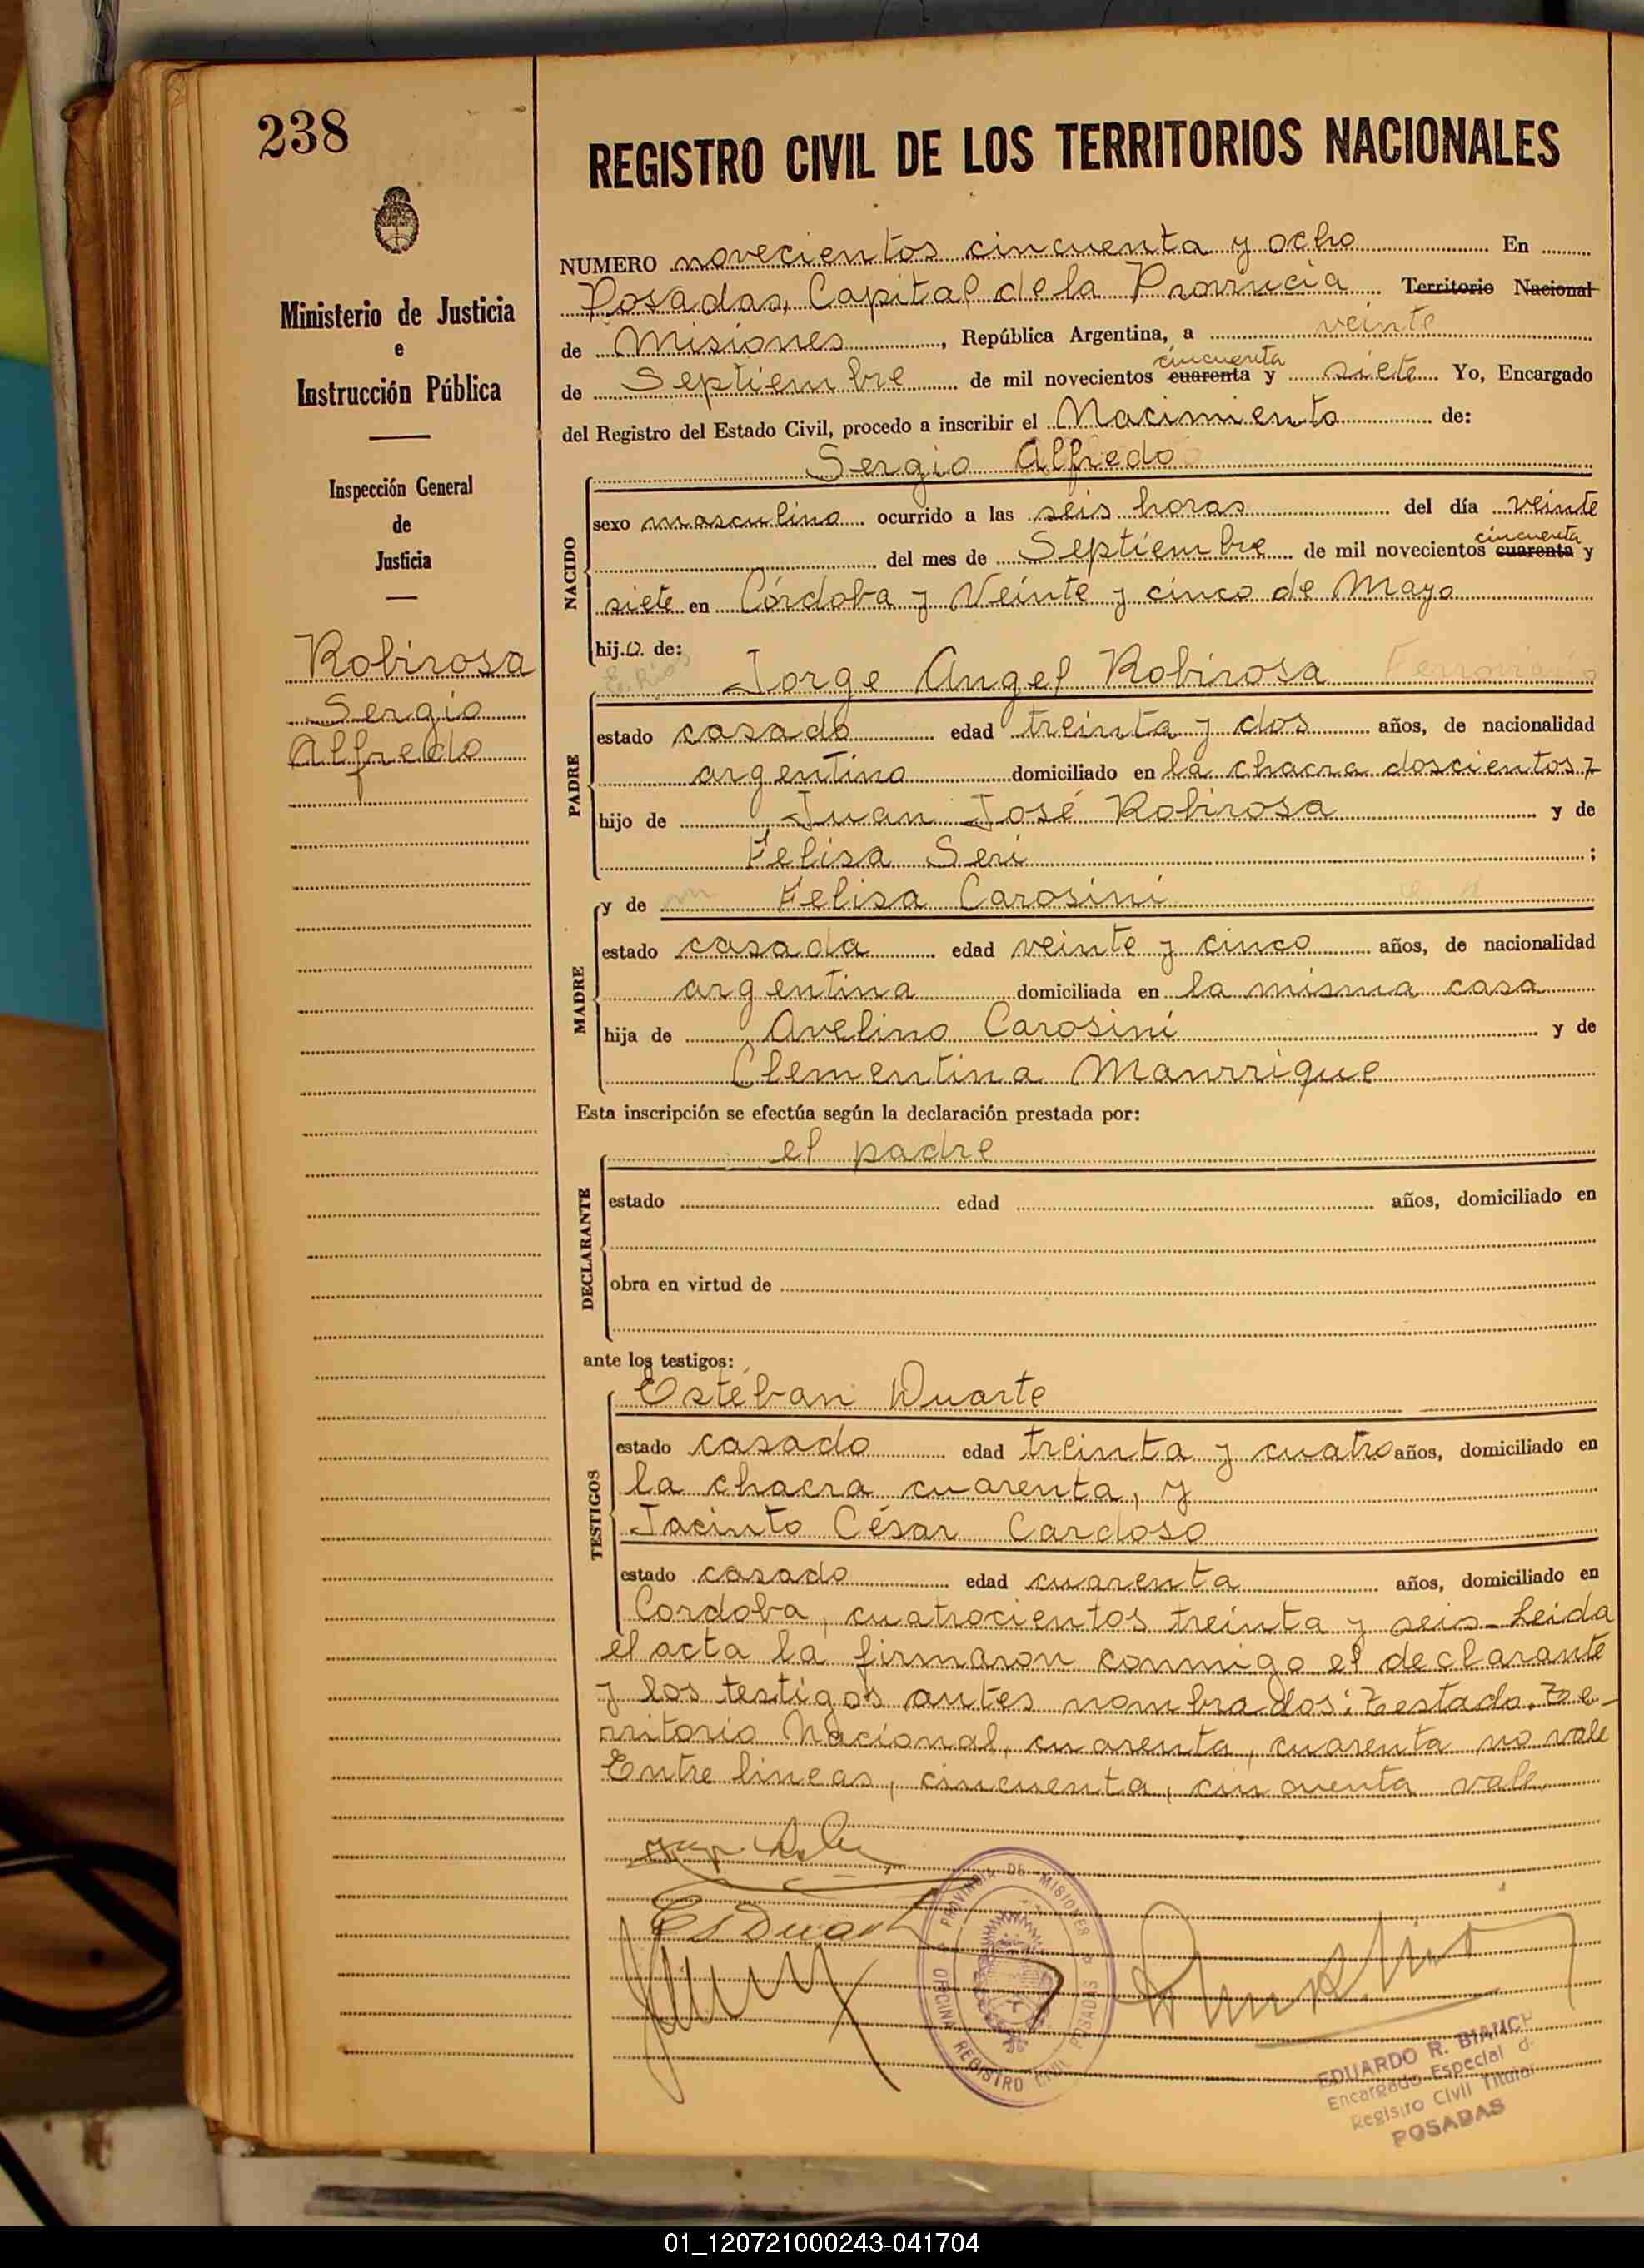 238
REGISTRO CIVIL DE LOS TERRITORIOS NACIONALES
Ministerio de Justicia
e
Instrucción Pública
Inspección General
de
Justicia
Robirosa
Sergio
Alfredo
NUMERO novecientos cincuenta y ocho En
Posadas, Capital de la Provincia Territorio Nacional
de Misiones, República Argentina, a veinte
cincuenta
de Septiembre de mil novecientos cuarenta y siete Yo, Encargado
del Registro del Estado Civil, procedo a inscribir el Nacimiento de:
Sergio Alfredo
NACIDO
sexo masculino ocurrido a las seis horas del día veinte
cincuenta
del mes de Septiembre de mil novecientos cuarenta y
siete en Córdoba y Veinte y cinco de Mayo
hij.o. de:
E. Ríos Jorge Angel Robirosa Ferroviario
PADRE
estado casado edad treinta y dos años, de nacionalidad
argentina domiciliado en la chacra doscientos 7
hijo de Juan José Robirosa y de
Felisa Seri ;
y de Felisa Carosini
MADRE
estado casada edad veinte y cinco años, de nacionalidad
argentina domiciliada en la misma casa
hija de Avelino Carosini y de
Clementina Manrrique
Esta inscripción se efectúa según la declaración prestada por:
el padre
DECLARANTE
estado edad años, domiciliado en
obra en virtud de
ante los testigos:
Estéban Duarte
TESTIGOS
estado casado edad treinta y cuatro años, domiciliado en
la chacra cuarenta, y
Jacinto César Cardoso
estado casado edad cuarenta años, domiciliado en
Cordoba, cuatrocientos treinta y seis. Leida
el acta la firmaron conmigo el declarante
y los testigos antes nombrados: Testado. Te-
rritorio Nacional, cuarenta, cuarenta no vale
Entre lineas, cincuenta, cincuenta vale
EsDuart
PROVINCIA DE MISIONES
OFICINA REGISTRO CIVIL POSADAS
EDUARDO R. BIANCH
Encargado Especial d
Registro Civil Titular
POSADAS
01_120721000243-041704